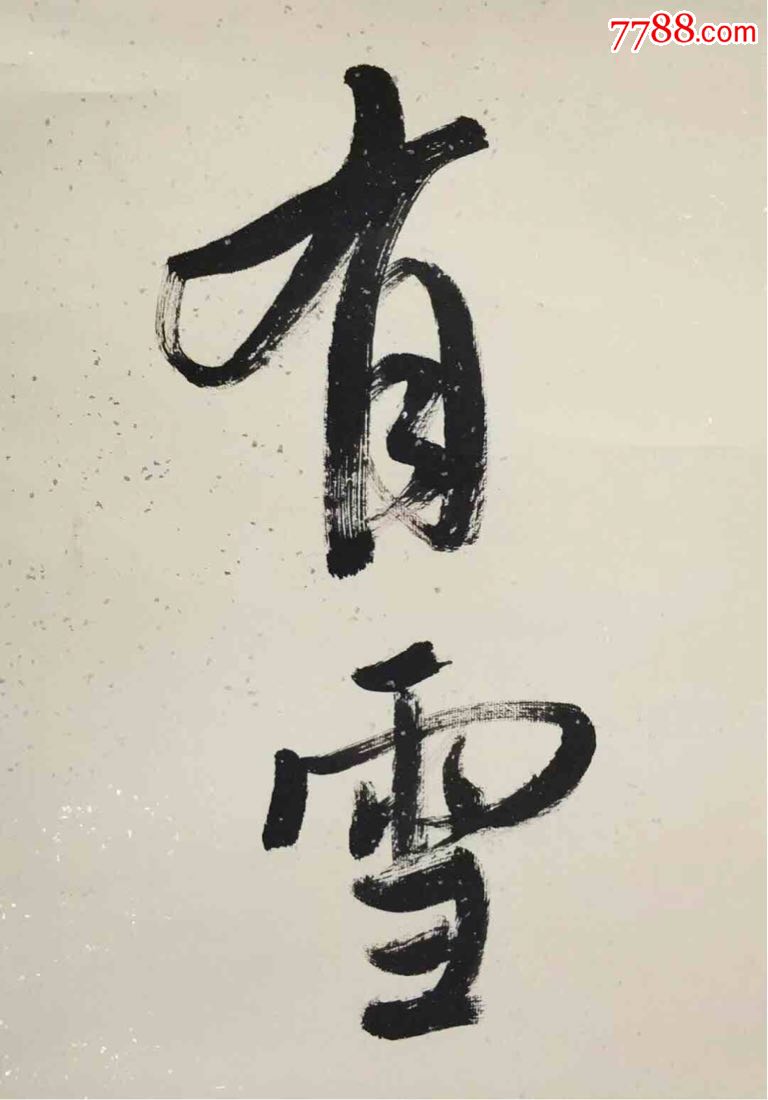 7788.com
有雪